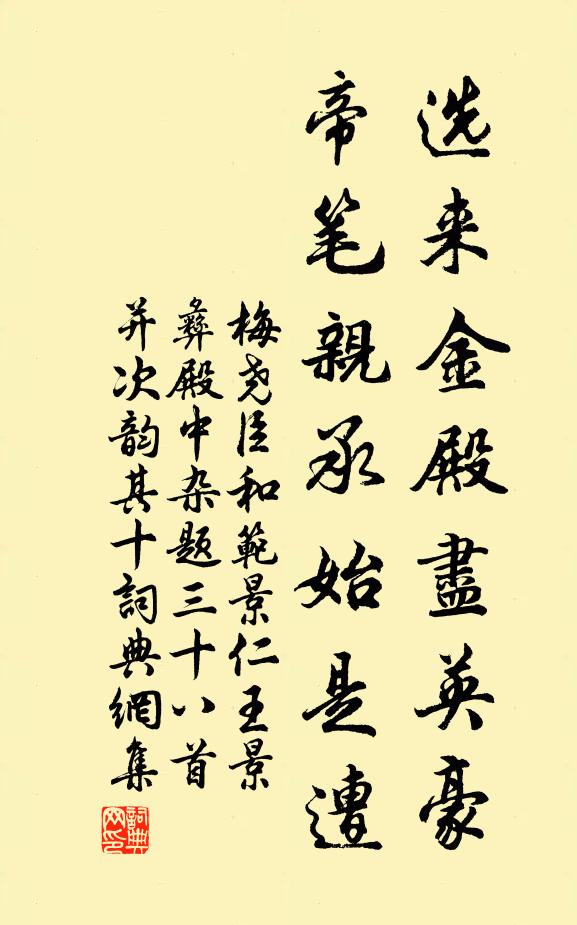 选来金殿盡英豪
帝笔親承始是遭
梅尧臣和範景仁王景
彝殿中杂题三十八首
并次韵其十詞典網集
詞典网印